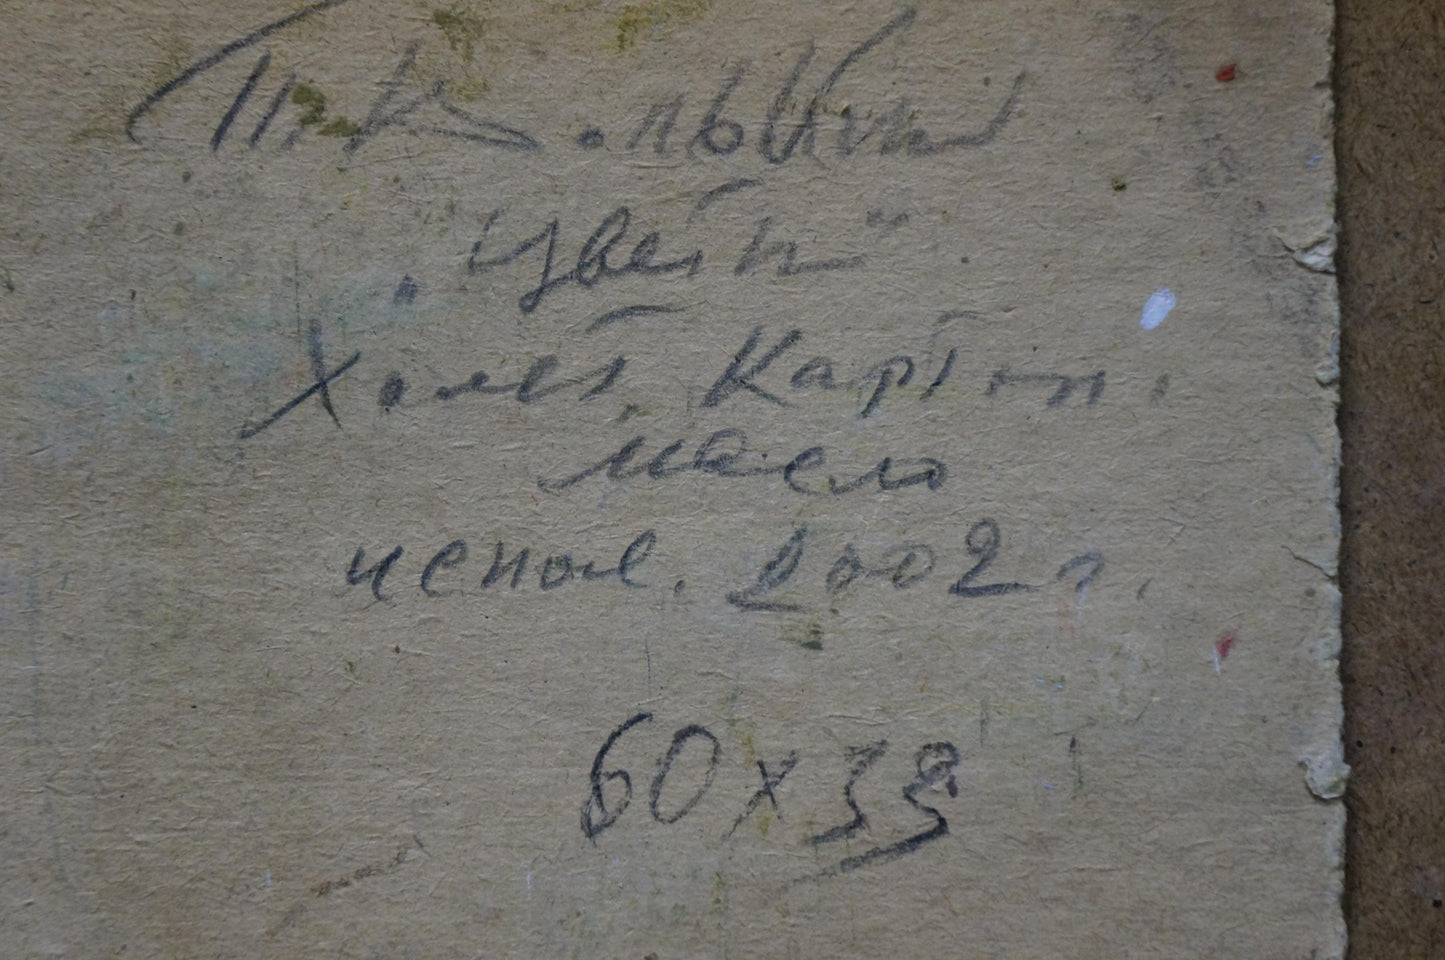 "Цветы"
Холст, Картон.
масло
испол. 2002 г.
60 х 33